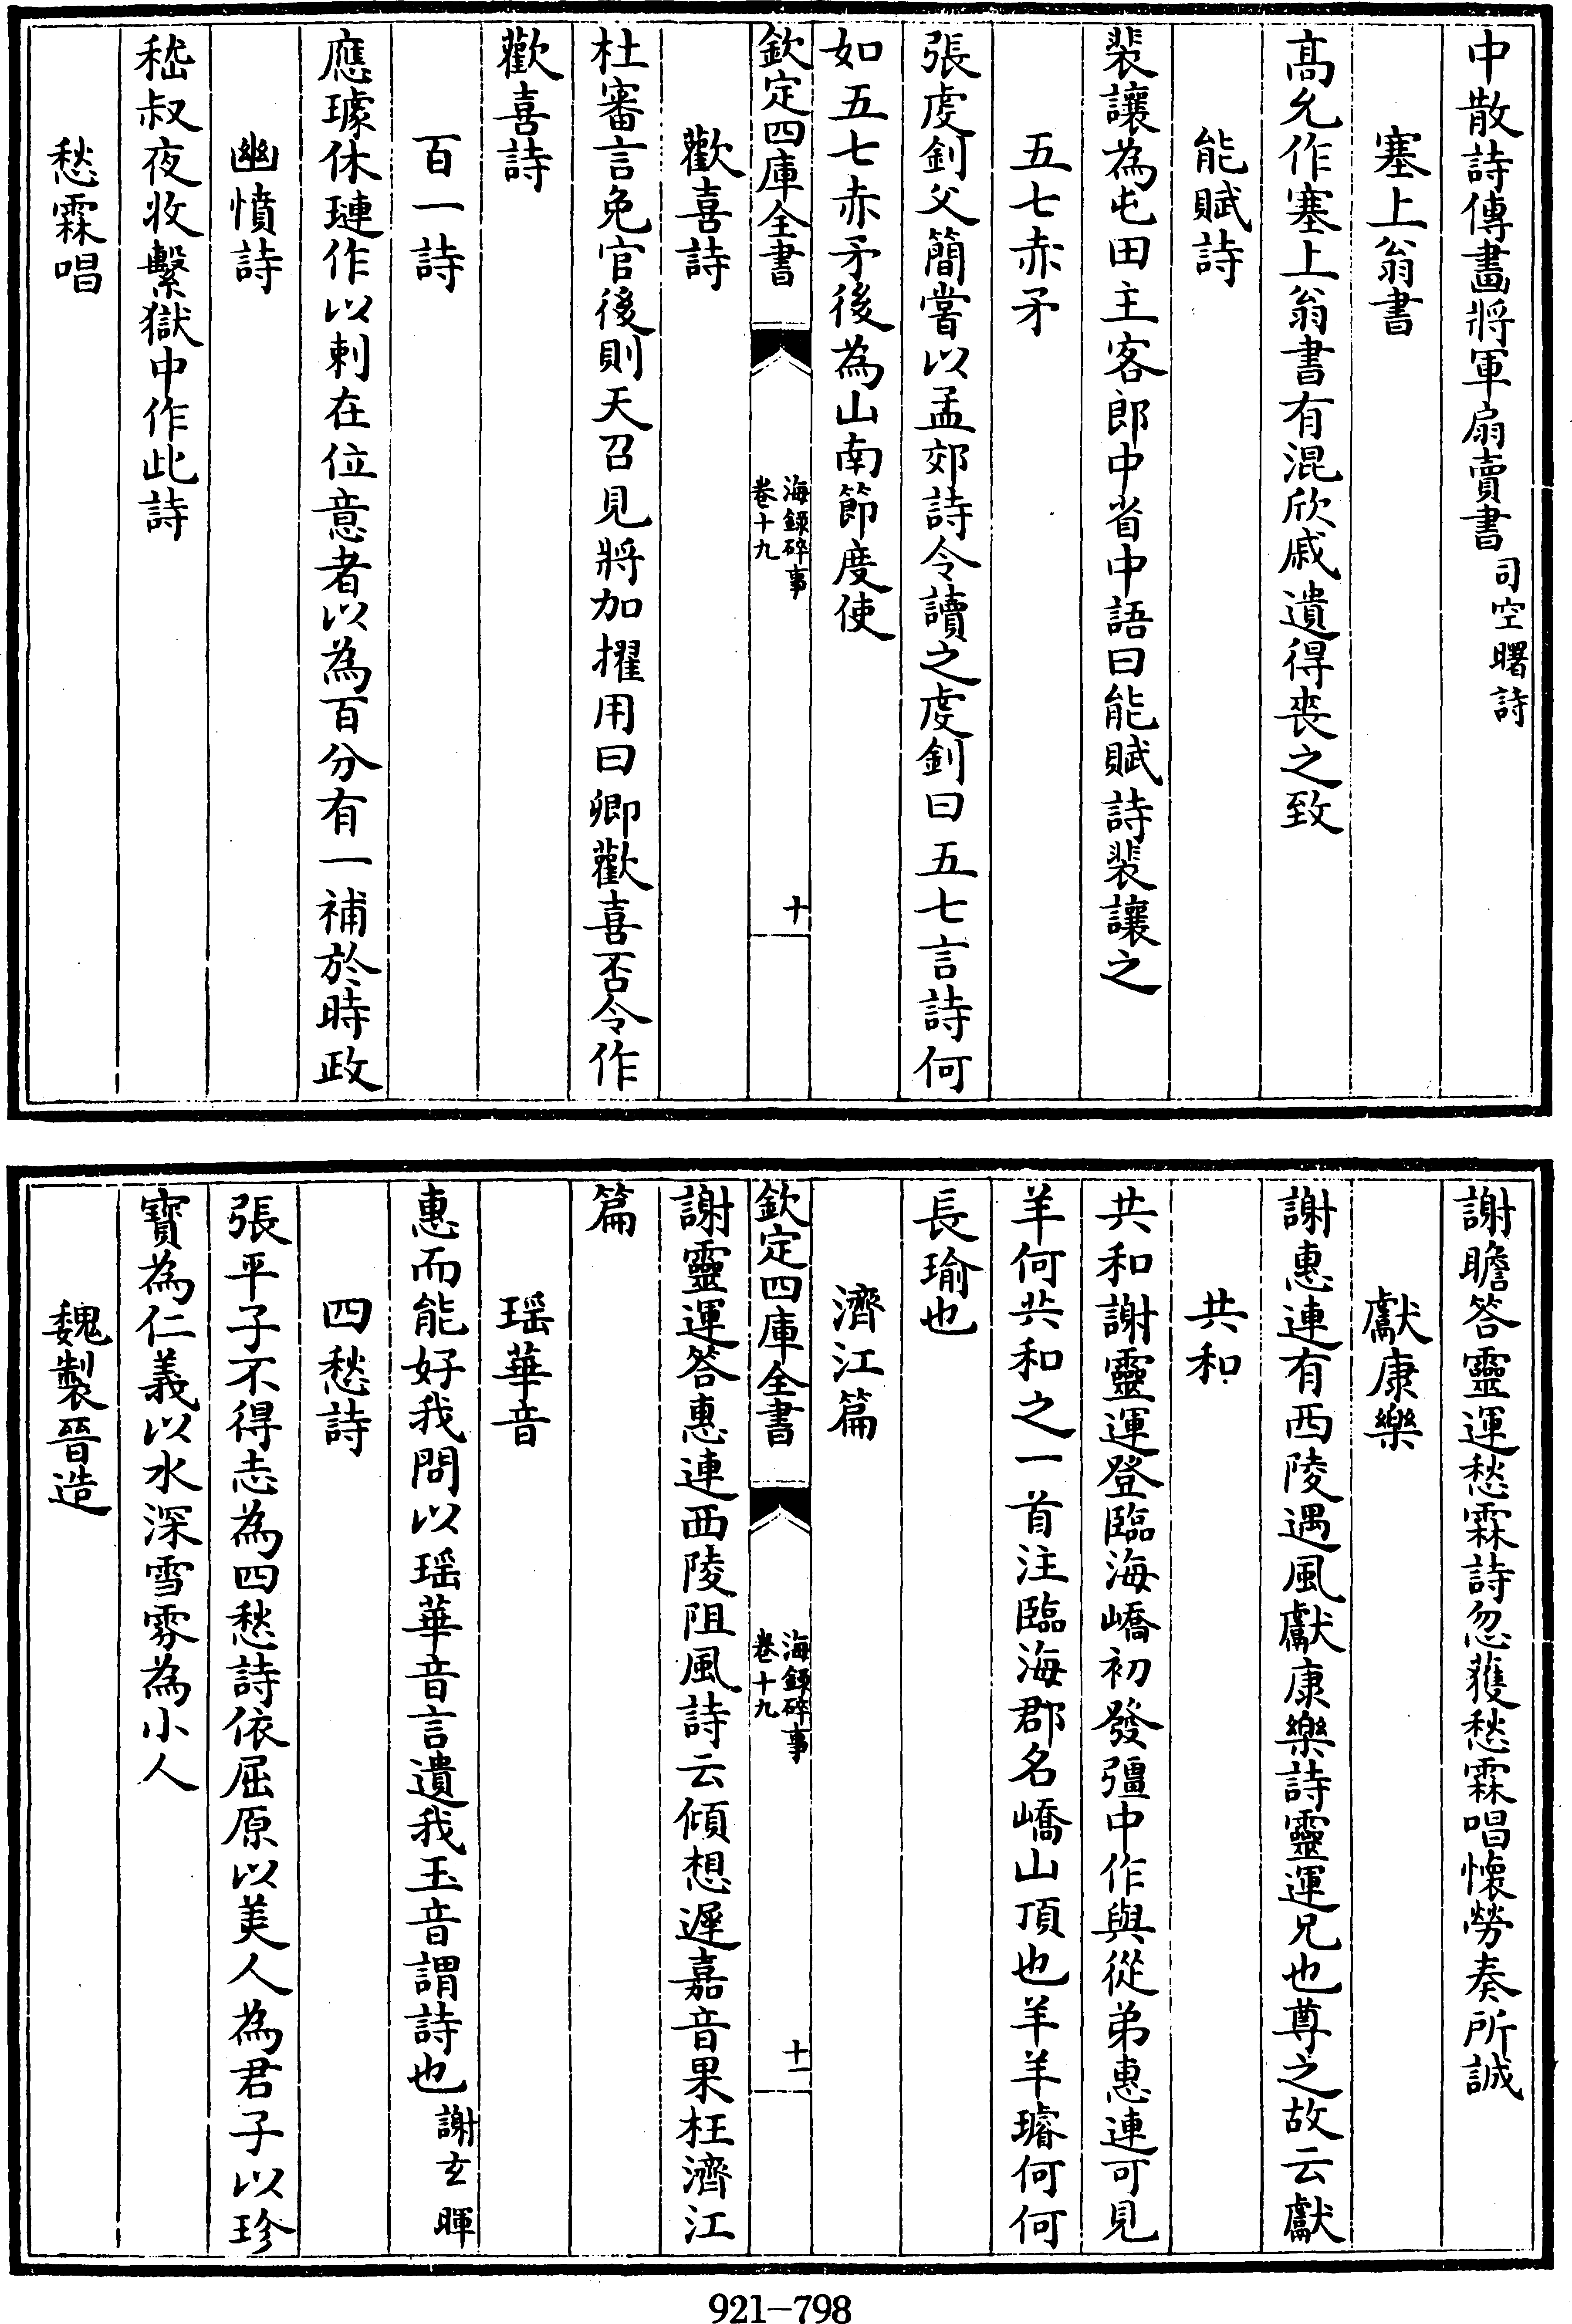 中散詩傳畵將軍扇賣書司空曙詩
塞上翁書
髙允作塞上翁書有混欣戚遺得喪之致
能賦詩
裴讓為屯田主客郎中省中語曰能賦詩裴讓之
五七赤矛
張䖍釗父簡嘗以孟郊詩令讀之䖍釗曰五七言詩何
如五七赤矛後為山南節度使
欽定四庫全書
海錄碎事
卷十九
十
歡喜詩
杜審言免官後則天召見將加擢用曰卿歡喜否令作
歡喜詩
百一詩
應璩休璉作以刺在位意者以為百分有一補於時政
幽憤詩
嵇叔夜收繫獄中作此詩
愁霖唱
謝瞻答靈運愁霖詩忽獲愁霖唱懷勞奏所誠
獻康樂
謝惠連有西陵遇風獻康樂詩靈運兄也尊之故云獻
共和
共和謝靈運登臨海嶠初發彊中作與從弟惠連可見
羊何共和之一首注臨海郡名嶠山頂也羊羊璿何何
長瑜也
濟江篇
欽定四庫全書
海錄碎事
卷十九
十一
謝靈運答惠連西陵阻風詩云傾想遲嘉音果枉濟江
篇
瑶華音
惠而能好我問以瑶華音言遺我玉音謂詩也謝玄暉
四愁詩
張平子不得志為四愁詩依屈原以美人為君子以珍
寳為仁義以水深雪雰為小人
魏製晉造
921-798